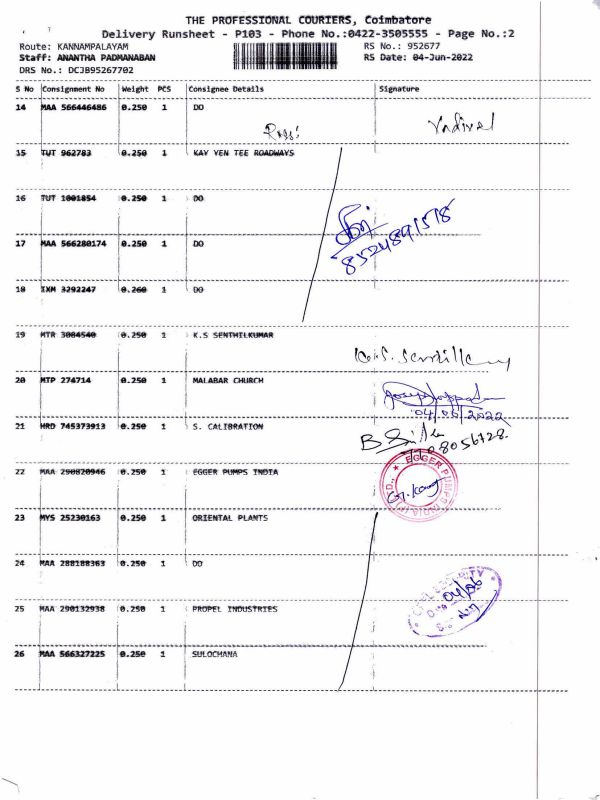 THE PROFESSIONAL COURIERS, Coimbatore
Delivery Runsheet - P103 - Phone No.:0422-3505555 - Page No.:2
Route: KANNAMPALAYAM RS No.: 952677
Staff: ANANTHA PADMANABAN RS Date: 04-Jun-2022
DRS No.: DCJB95267702
S No Consignment No Weight PCS Consignee Details Signature
14 MAA 566446486 0.250 1 DO
Vadivel
15 TUT 962783 0.250 1 KAY YEN TEE ROADWAYS
16 TUT 1001854 0.250 1 DO
8524891578
17 MAA 566280174 0.250 1 DO
18 IXM 3292247 0.260 1 DO
19 MTR 3084540 0.250 1 K.S SENTHILKUMAR
20 MTP 274714 0.250 1 MALABAR CHURCH
04/06/2022
21 HRD 745373913 0.250 1 S. CALIBRATION
22 MAA 290820946 0.250 1 EGGER PUMPS INDIA
EGGER PUMPS INDIA (P) LTD.,
23 MYS 25230163 0.250 1 ORIENTAL PLANTS
24 MAA 288188363 0.250 1 DO
04/06
25 MAA 290132938 0.250 1 PROPEL INDUSTRIES
26 MAA 566327225 0.250 1 SULOCHANA